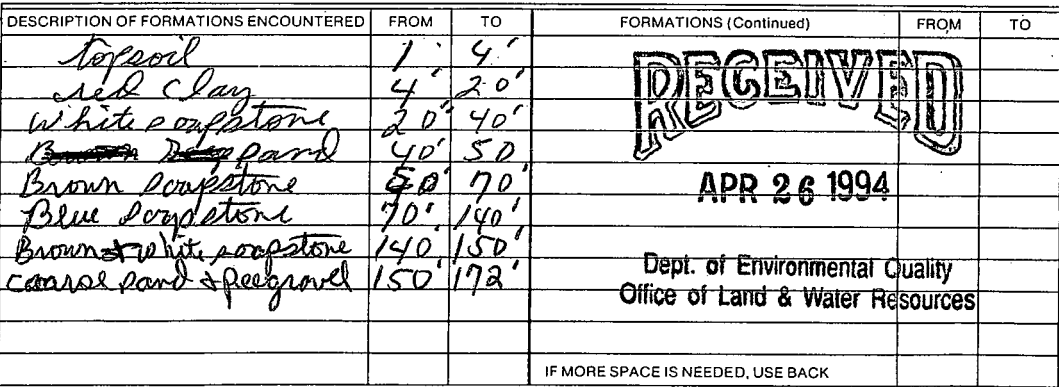 DESCRIPTION OF FORMATIONS ENCOUNTERED FROM TO FORMATIONS (Continued) FROM TO
topsoil 1' 4'
red Clay 4' 20'
White soapstone 20' 40'
sand 40' 50
Brown soapstone 50' 70'
Blue soapstone 70' 140'
Brown & white soapstone 140 150'
coarse sand & peegravel 150' 172'
RECEIVED
APR 26 1994
Dept. of Environmental Quality
Office of Land & Water Resources
IF MORE SPACE IS NEEDED, USE BACK